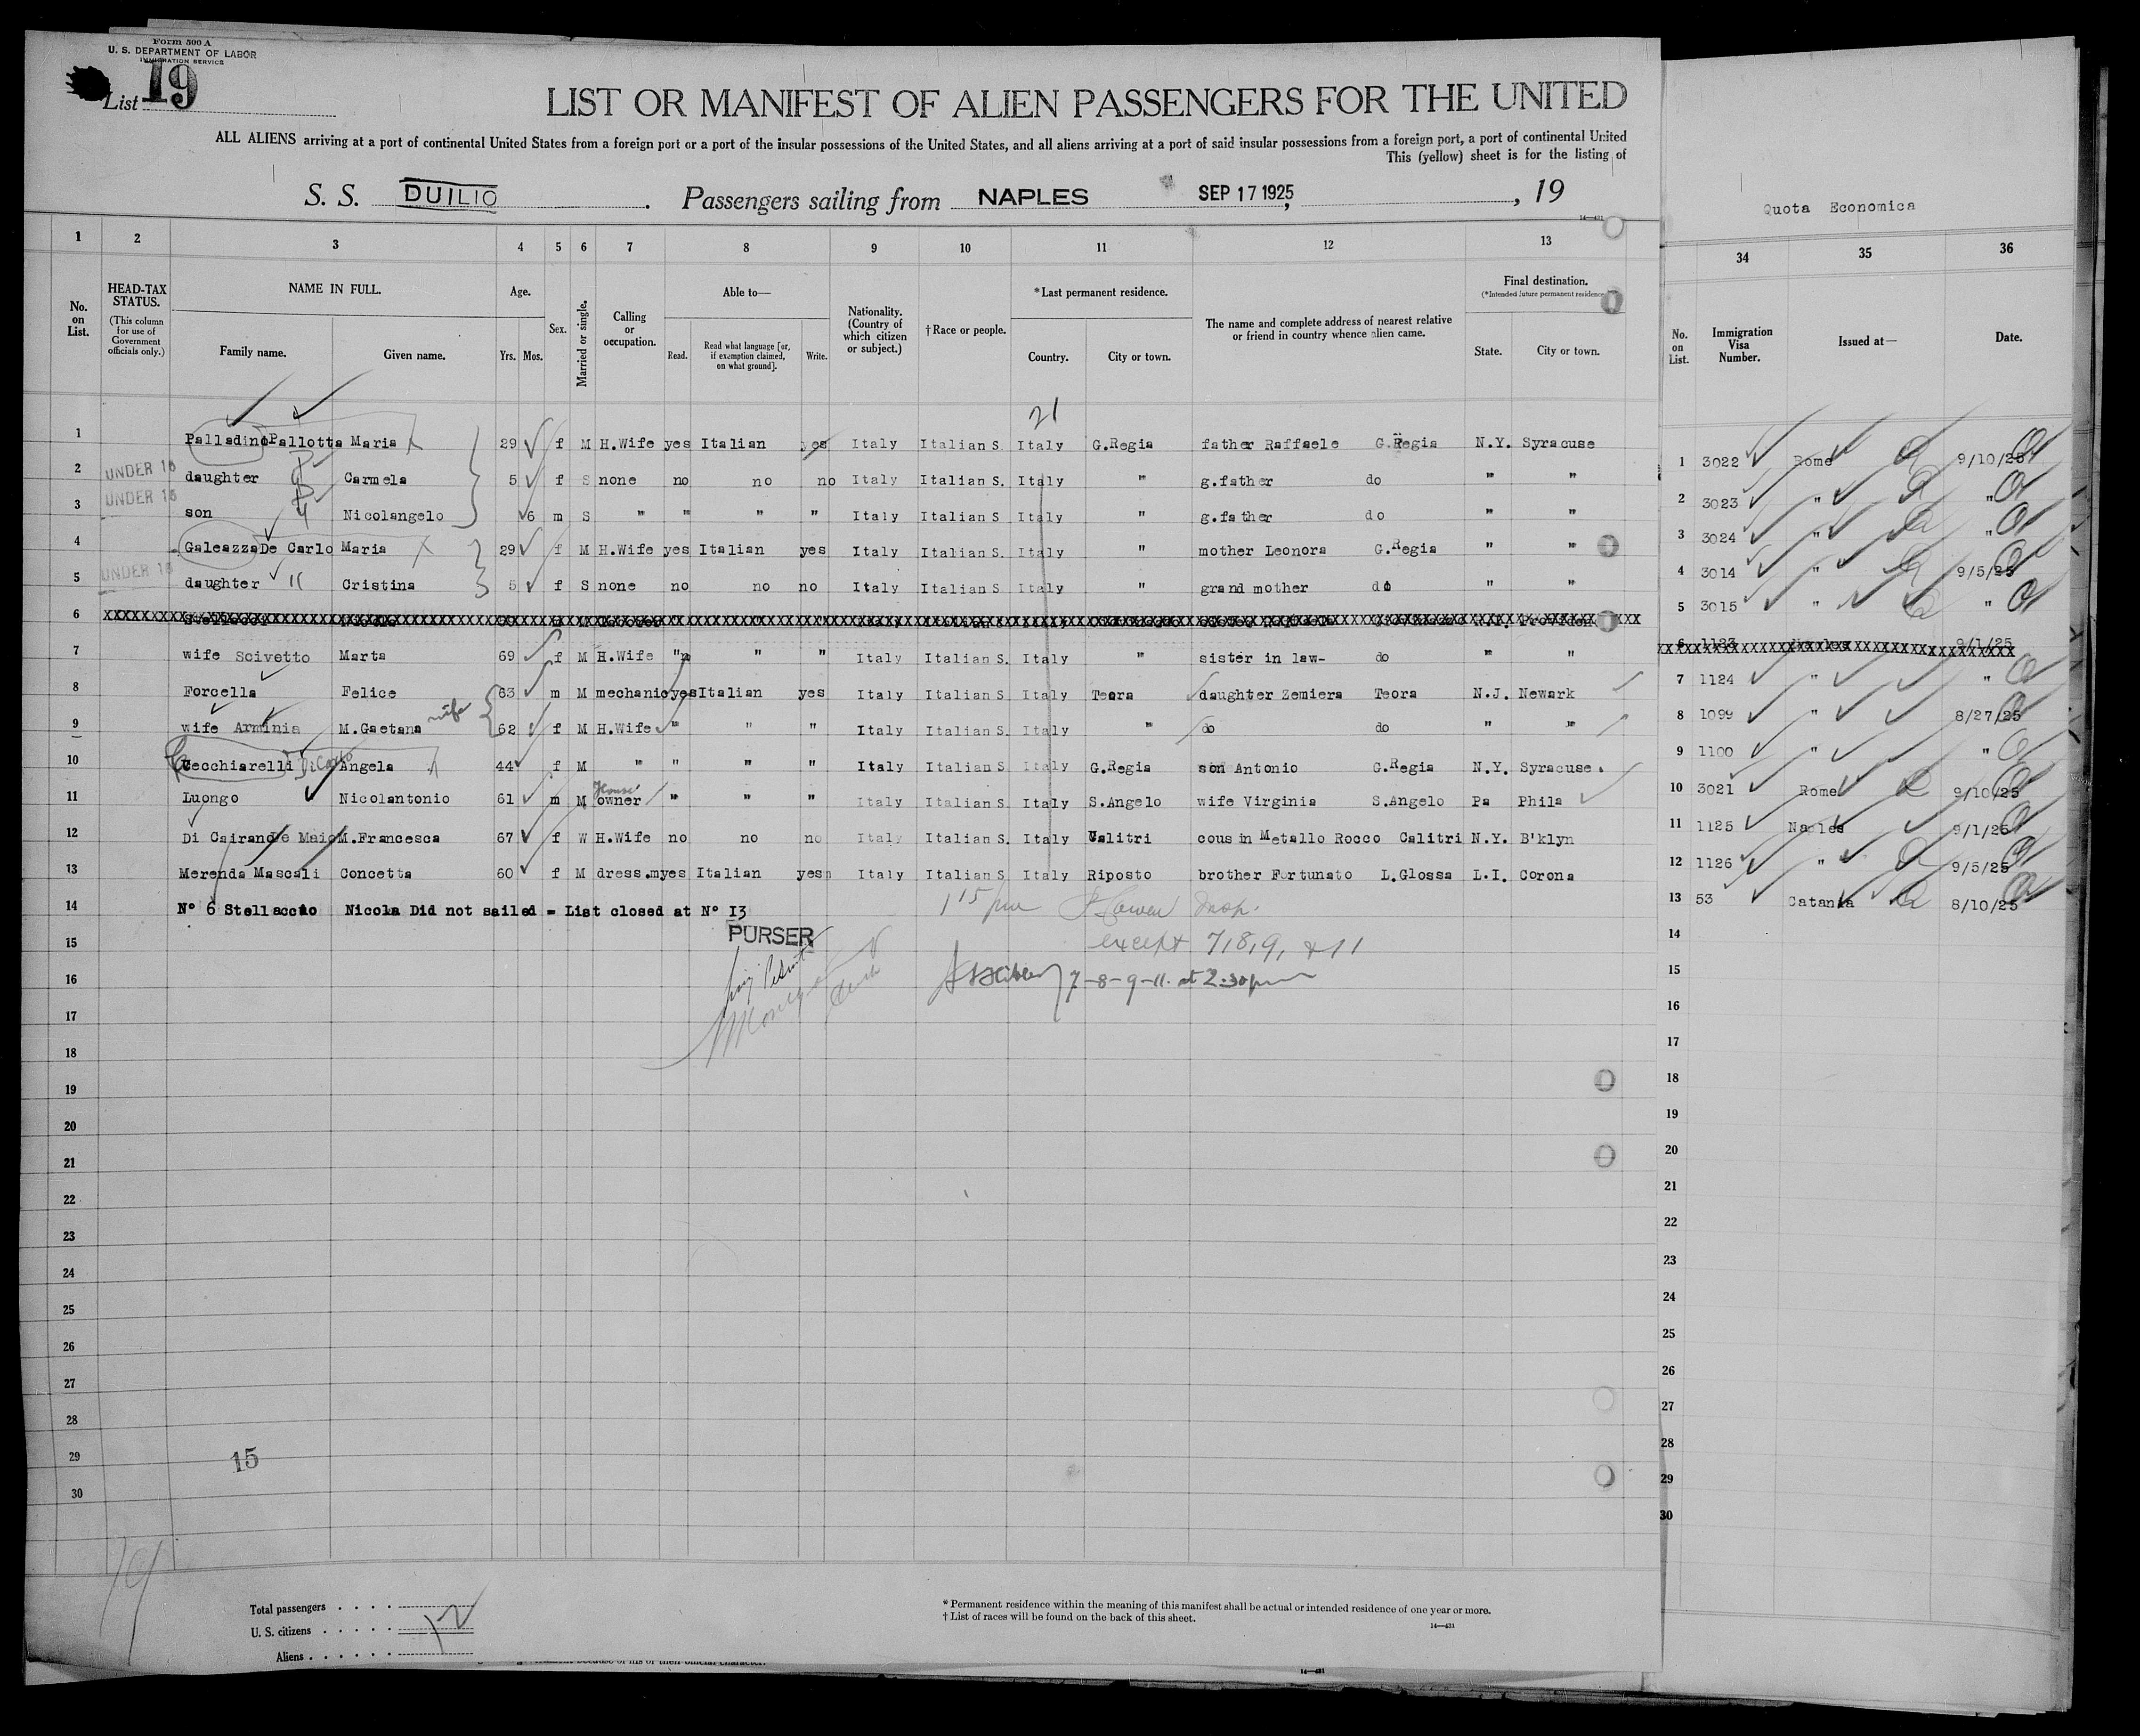 Form 500 A
U. S. DEPARTMENT OF LABOR
IMMIGRATION SERVICE
List 19
LIST OR MANIFEST OF ALIEN PASSENGERS FOR THE UNITED
ALL ALIENS arriving at a port of continental United States from a foreign port or a port of the insular possessions of the United States, and all aliens arriving at a port of said insular possessions from a foreign port, a port of continental United
This (yellow) sheet is for the listing of
S. S. DUILIO . Passengers sailing from NAPLES SEP 17 1925, , 19
14—431
Quota Economica
1 2 3 4 5 6 7 8 9 10 11 12 13
34 35 36
No. on List.
HEAD-TAX STATUS.
(This column for use of Government officials only.)
NAME IN FULL.
Family name. Given name.
Age.
Yrs. Mos.
Sex.
Married or single.
Calling or occupation.
Able to—
Read. Read what language [or, if exemption claimed, on what ground]. Write.
Nationality. (Country of which citizen or subject.)
† Race or people.
* Last permanent residence.
Country. City or town.
The name and complete address of nearest relative or friend in country whence alien came.
Final destination.
(*Intended future permanent residence
State. City or town.
No. on List.
Immigration Visa Number.
Issued at—
Date.
21
1 Palladino Pallotta Maria 29 f M H.Wife yes Italian yes Italy Italian S. Italy G.Regia father Raffaele G.Regia N.Y. Syracuse
2 UNDER 16 daughter Carmela 5 f S none no no no Italy Italian S. Italy " g.father do " "
3 UNDER 16 son Nicolangelo 6 m S " " " " Italy Italian S. Italy " g.father do " "
4 Galeazza De Carlo Maria 29 f M H.Wife yes Italian yes Italy Italian S. Italy " mother Leonora G.Regia " "
5 UNDER 16 daughter " Cristina 5 f S none no no no Italy Italian S Italy " grand mother do " "
6
7 wife Scivetto Marta 69 f M H.Wife " " " Italy Italian S. Italy " sister in law- do " "
8 Forcella Felice 63 m M mechanic yes Italian yes Italy Italian S Italy Teora daughter Zemiera Teora N.J. Newark
9 wife Arminia M.Gaetana wife 62 f M H.Wife " " " Italy Italian S Italy " do do " "
10 Vecchiarelli Di Carlo Angela 44 f M " " " " Italy Italian S Italy G.Regia son Antonio G.Regia N.Y. Syracuse.
11 Luongo Nicolantonio 61 m M House owner " " " Italy Italian S. Italy S.Angelo wife Virginia S.Angelo Pa Phila
12 Di Cairano de Maio M.Francesca 67 f W H.Wife no no no Italy Italian S. Italy Calitri cousin Metallo Rocco Calitri N.Y. B'klyn
13 Merenda Mascali Concetta 60 f M dress.m yes Italian yes Italy Italian S Italy Riposto brother Fortunato L.Glossa L.I. Corona
14 N° 6 Stellaccio Nicola Did not sailed = List closed at N° I3
1 15 pm Insp.
PURSER
except 7,8,9, & 11
7-8-9-11. at 2:30 pm
15
16
17
18
19
20
21
22
23
24
25
26
27
28
29
30
15
19
1 3022 Rome 9/10/25
2 3023 " "
3 3024 " "
4 3014 " 9/5/25
5 3015 " "
6 1123 9/1/25
7 1124 " "
8 1099 " 8/27/25
9 1100 " "
10 3021 Rome 9/10/25
11 1125 Naples 9/1/25
12 1126 " 9/5/25
13 53 Catania 8/10/25
14
15
16
17
18
19
20
21
22
23
24
25
26
27
28
29
30
Total passengers . . . .
U. S. citizens . . . . . 12
Aliens . . . . . .
* Permanent residence within the meaning of this manifest shall be actual or intended residence of one year or more.
† List of races will be found on the back of this sheet.
14—431
14—431